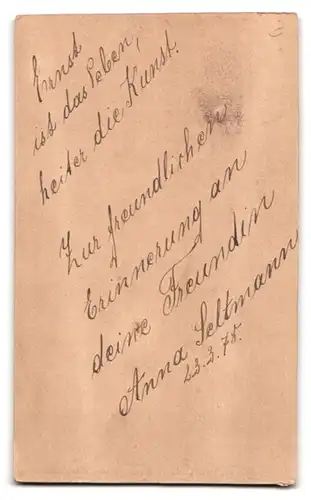 Ernst
ist das Leben,
heiter die Kunst.
Zur freundlichen
Erinnerung an
deine Freundin
Anna Seltmann
23.3.75.